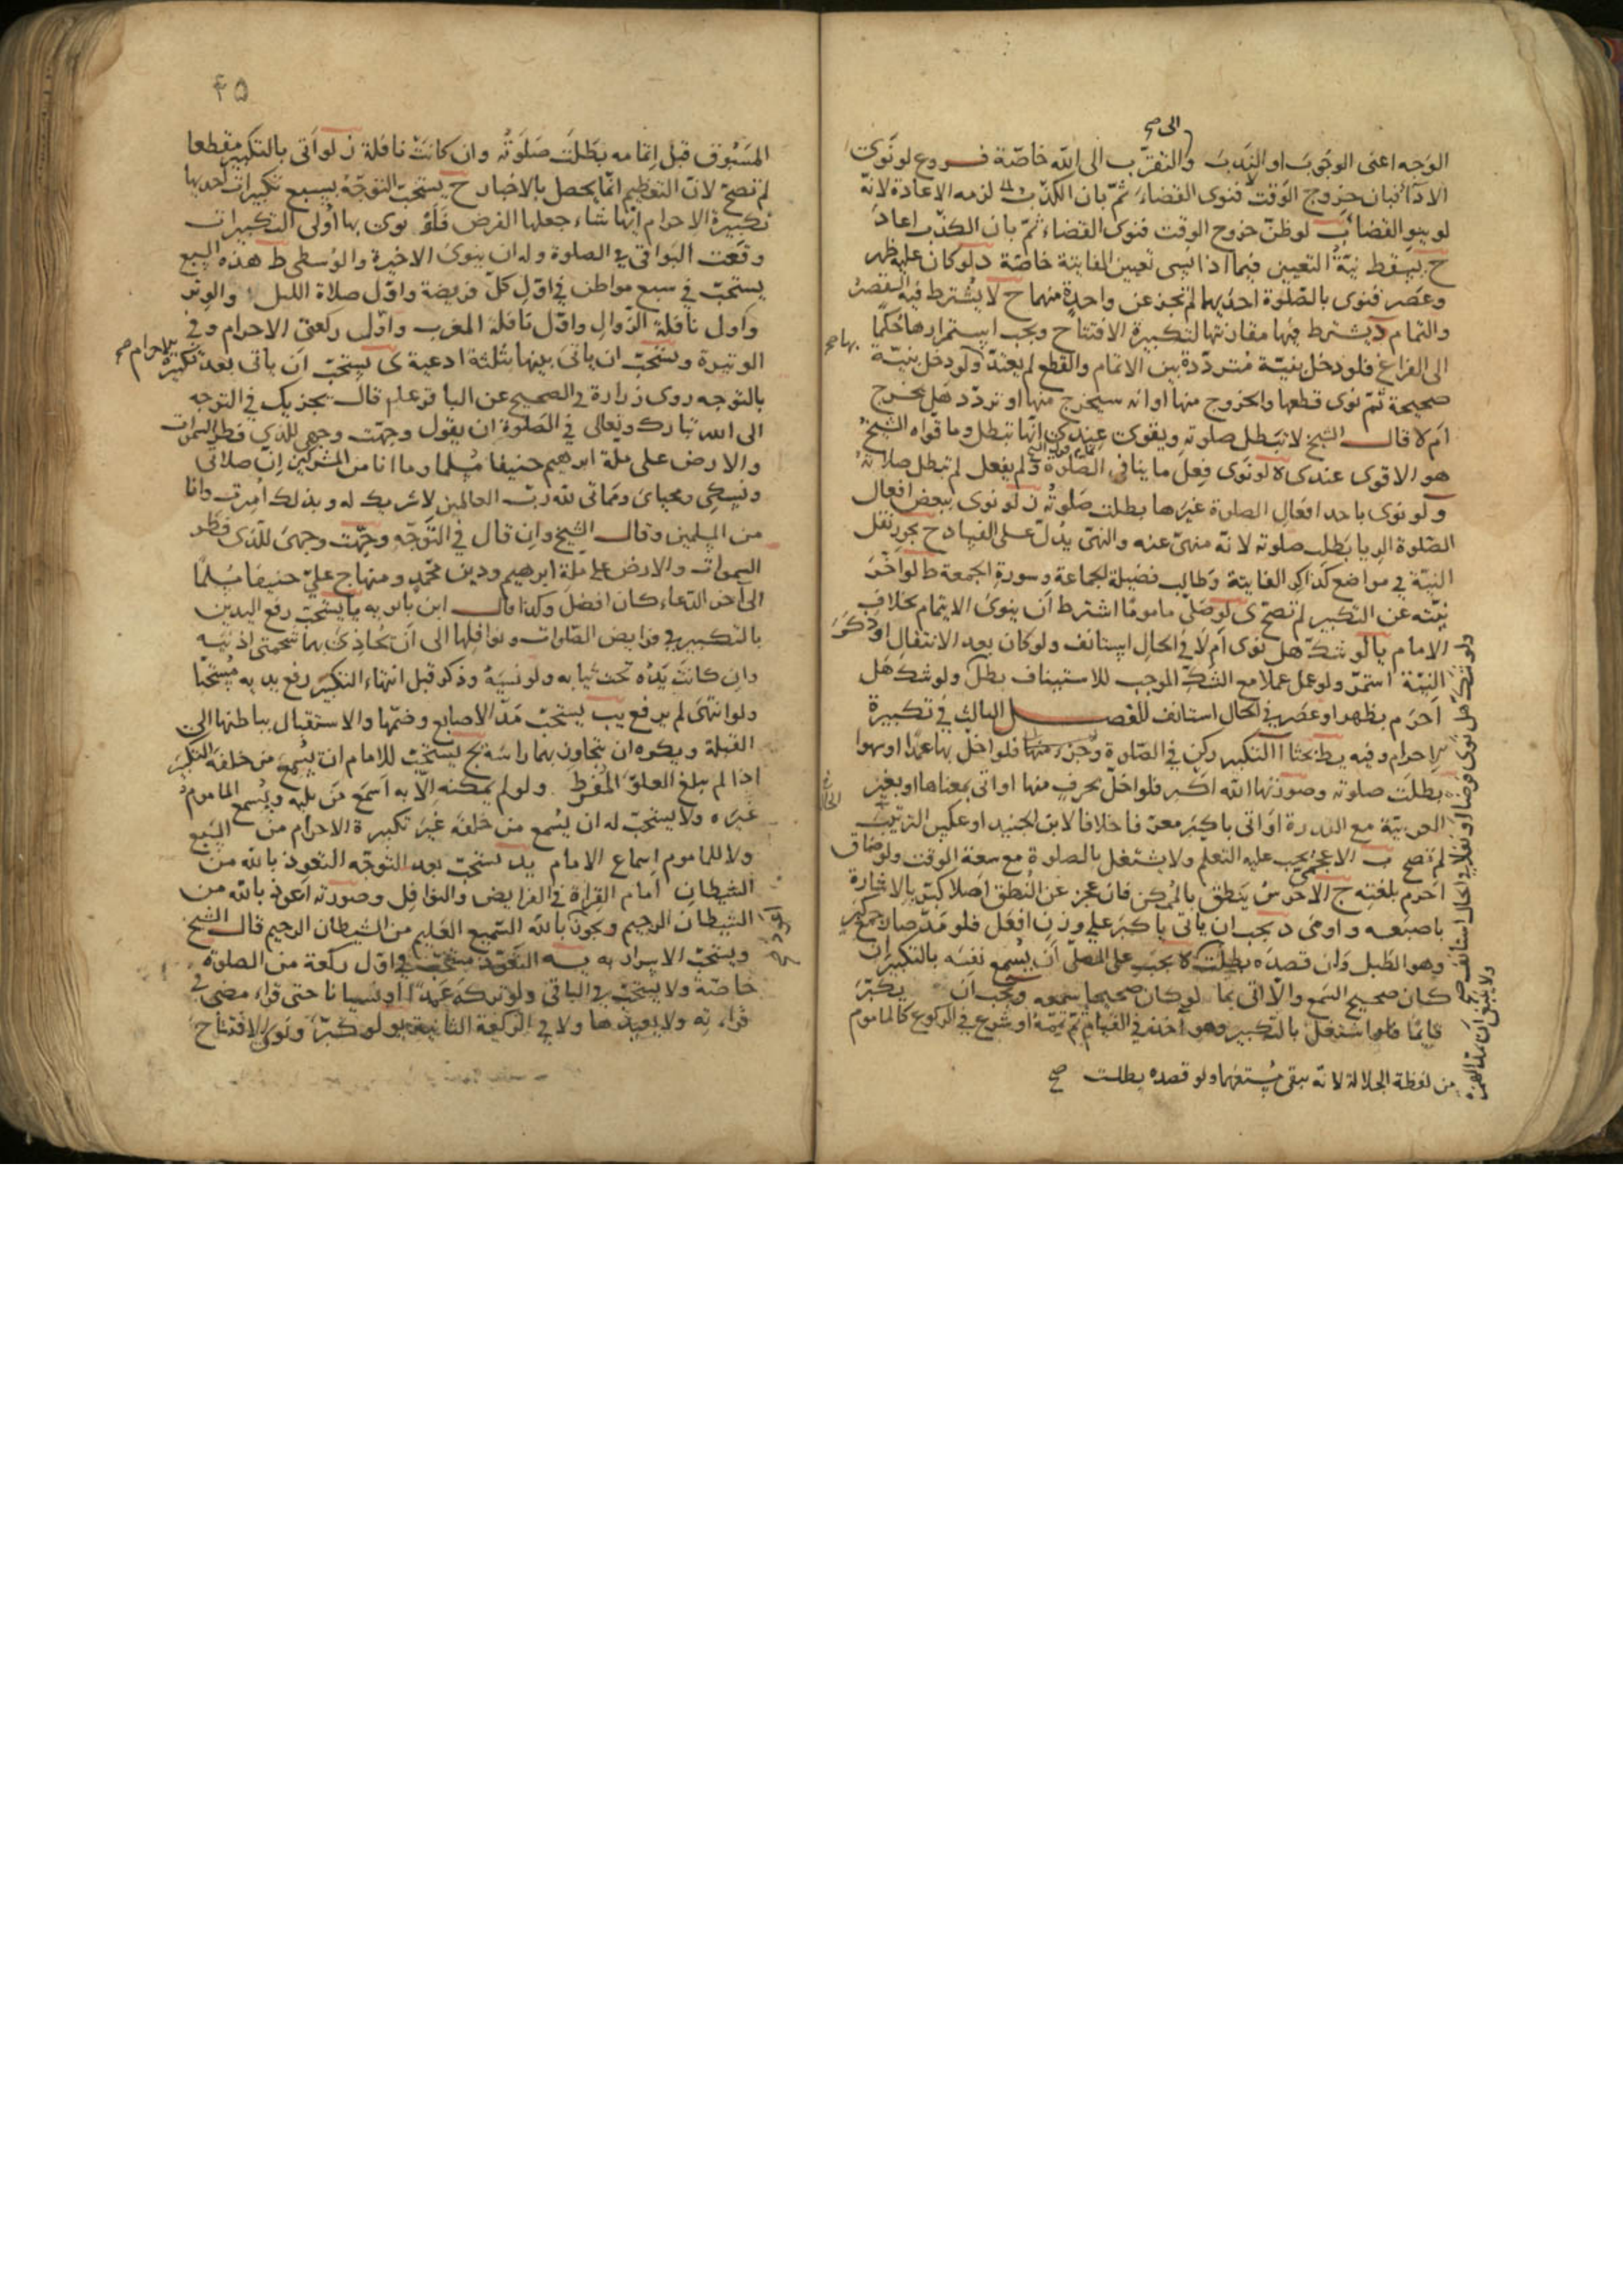 الوجه اعنى الوجوب او الندب والتقرّب الى الله خاصّة فروع لو نوى
الاداء فبان خروج الوقت فنوى القضاء ثمّ بان الكذب لزمه الاعادة لانّه
لو ينو القضا ب لو ظنّ خروج الوقت فنوى القضاء ثمّ بان الكذب اعاد
ج يسقط نيّة التعيين فيما اذا نسى تعيين الفايتة خاصّة د لو كان عليه ظهر
وعصر فنوى بالصّلوة احديهما لم تجز عن واحدة منهما ح لا يشترط فيه القصر
والتمام د يشترط فيها مقارنتها لتكبيرة الافتتاح ويجب استمرارها حكما
الى الفراغ فلو دخل بنيّة متردّدة بين الاتمام والقطع لم يعتدّ ولو دخل بنيّة
صحيحة ثمّ نوى قطعها والخروج منها او انه سيخرج منها او تردّد هل يخرج
ام لا قال الشيخ لا تبطل صلوته ويقوى عندى انّها تبطل وما قواه الشيخ
هو الاقوى عندى ه لو نوى فعل ما ينافى الصلوة ولم يفعل لم تبطل صلاته
ولو نوى باحد افعال الصلوة غيرها بطلت صلوته ز لو نوى ببعض افعال
الصّلوة الريا بطلت صلوته لانّه منهىّ عنه والنهى يدلّ على الفساد ح يجوز نقل
النيّة فى مواضع كذاكر الفايتة وطالب فضيلة الجماعة وسورة الجمعة ط لو اخّر
نيّته عن التكبير لم تصحّ ى لو صلّى ماموما اشترط ان ينوى الايتمام بخلاف
الامام يا لو شكّ هل نوى ام لا فى الحال استانف ولو كان بعد الانتقال او ذكر
النيّة استمرّ ولو عمل عملا مع الشكّ الموجب للاستيناف بطل ولو شك هل
احرم بظهر او عصر فى الحال استانف الفصل الثالث فى تكبيرة
الاحرام وفيه يط بحثا ا التكبير ركن فى الصّلوة وجزء منها فلو اخلّ بها عمدا او سهوا
بطلت صلوته وصورتها الله اكبر فلو اخلّ بحرف منها او اتى بمعناها او بغير
العربيّة مع القدرة او اتى باكبر معرّفا خلافا لابن الجنيد او عكس الترتيب
لم تصح ب الاعجمى يجب عليه التعلم ولا يشتغل بالصلوة مع سعة الوقت ولو ضاق
احرم بلغته ج الاخرس ينطق بالممكن فان عجز عن النطق اصلا كبّر بالاشارة
باصبعه واومى د يجب ان ياتى باكبر على وزن افعل فلو مدّ صار جمع كبر
وهو الطبل وان قصده بطلت ه يجب على المصلّى ان يسمع نفسه بالتكبير ان
كان صحيح السّمع والّا اتى بما لو كان صحيحا سمعه ويجب ان يكبّر
قايما فلو اشتغل بالتكبير وهو آخذ فى القيام ثم تممه او شرع فى الركوع كالماموم
من لفظة الجلالة لانّه يبقى مستفهما ولو قصده بطلت صح
ولو شكّ هل نوى فرضا او نفلا فى الحال استانف صح
ولا ينبغى ان يمدّ الهمزة
الى صح
بها صح
٤٥
المسبوق قبل اتمامه بطلت صلوته وان كانت نافلة ز لو اتى بالتكبير مقطعا
لم تصحّ لانّ التعظيم انّما يحصل بالاخبار ح يستحبّ التوجّه بسبع تكبيرات احديها
تكبيرة الاحرام ايّها شاء جعلها الفرض فلو نوى بها اولى التكبيرات
وقعت البواقى فى الصلوة وله ان ينوى الاخيرة والوسطى ط هذه السبع
يستحبّ فى سبع مواطن فى اوّل كلّ فريضة واوّل صلاة الليل والوتر
واول نافلة الزوال واوّل نافلة المغرب واوّل ركعتى الاحرام وفى
الوتيرة ويستحبّ ان ياتى بينها بثلثة ادعية ى يستحبّ ان ياتى بعد تكبيرة
الاحرام صح
بالتوجه روى زرارة فى الصحيح عن الباقر علم قال يجزيك فى التوجه
الى الله تبارك وتعالى فى الصّلوة ان يقول وجهت وجهى للذى فطر السموات
والارض على ملة ابرهيم حنيفا مسلما وما انا من المشركين انّ صلاتى
ونسكى ومحياى ومماتى لله ربّ العالمين لا شريك له وبذلك امرت وانا
من المسلمين وقال الشيخ وان قال فى التوجّه وجّهت وجهى للّذى فطر
السموات والارض على ملّة ابرهيم ودين محمّد ومنهاج علىّ حنيفا مسلما
الى آخر الدّعاء كان افضل وكذا قال ابن بابويه يا يستحبّ رفع اليدين
بالتكبير فى فرايض الصّلوات ونوافلها الى ان تحاذى بهما شحمتى اذنيه
وان كانت يداه تحت ثيابه ولو نسيه وذكر قبل انتهاء التكبير رفع يديه مستحبّا
ولو انتهى لم يرفع يب يستحبّ مدّ الاصابع وضمّها والاستقبال بباطنها الى
القبلة ويكره ان يتجاوز بهما راسه يج يستحبّ للامام ان يسمع من خلفه التكبير
اذا لم يبلغ العلوّ المفرط ولو لم يمكنه الّا به اسمع من يليه ويسمع الماموم
غيره ولا يستحبّ له ان يسمع من خلفه غير تكبيرة الاحرام من السّبع
ولا للماموم اسماع الامام يد يستحبّ بعد التوجّه التعوذ بالله من
الشيطان امام القراءة فى الفرايض والنوافل وصورته اعوذ بالله من
الشيطان الرجيم ويجوز بالله السّميع العليم من الشيطان الرجيم قال الشيخ
ويستحبّ الاسرار به يه التعوّذ مستحبّ فى اوّل ركعة من الصلوة
خاصّة ولا يستحبّ فى الباقى ولو تركه عمدا او نسيانا حتى قراء مضى فى
قراءته ولا يعيدها ولا فى الركعة الثانية يو لو كبّر ونوى الافتتاح